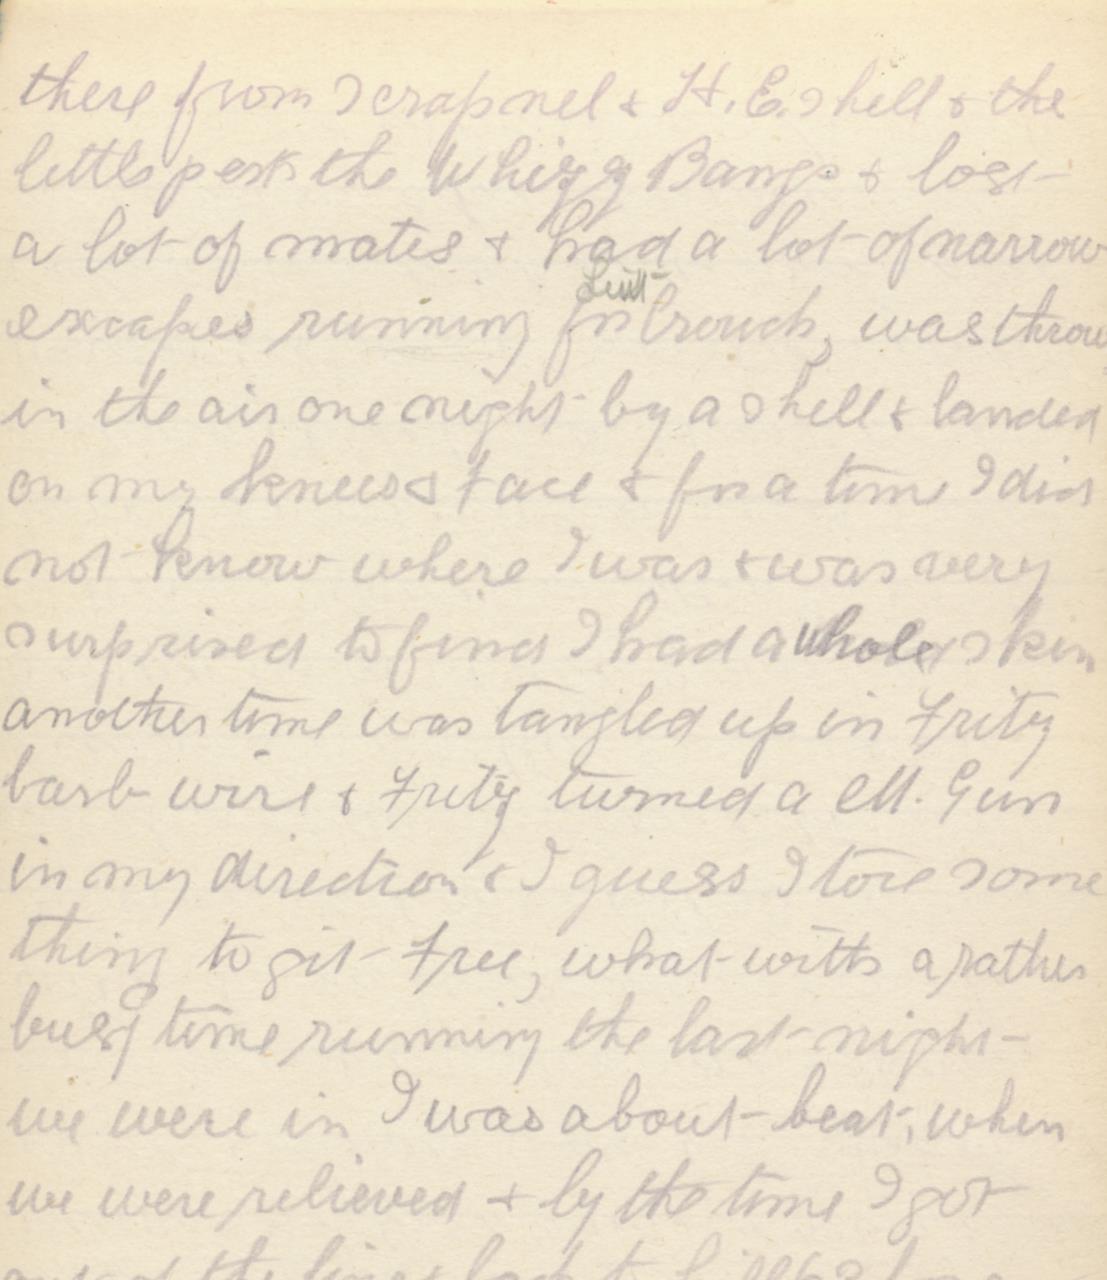 there from Scrapnel & H.E. shell & the
little pests the Whizz Bangs & lost
a lot of mates & had a lot of narrow
excapes running for Lieut Crouch, was throw
in the air one night by a shell & landed
on my knees & Face & for a time I did
not know where I was & was very
surprised to find I had a whole skin
another time was tangled up in Fritz
barb wire & Fritz turned a M. Gun
in my direction & I guess I tore some
thing to git Free, what with a rather
busy time running the last night
we were in I was about beat, when
we were relieved & by the time I got
out of the line & back to